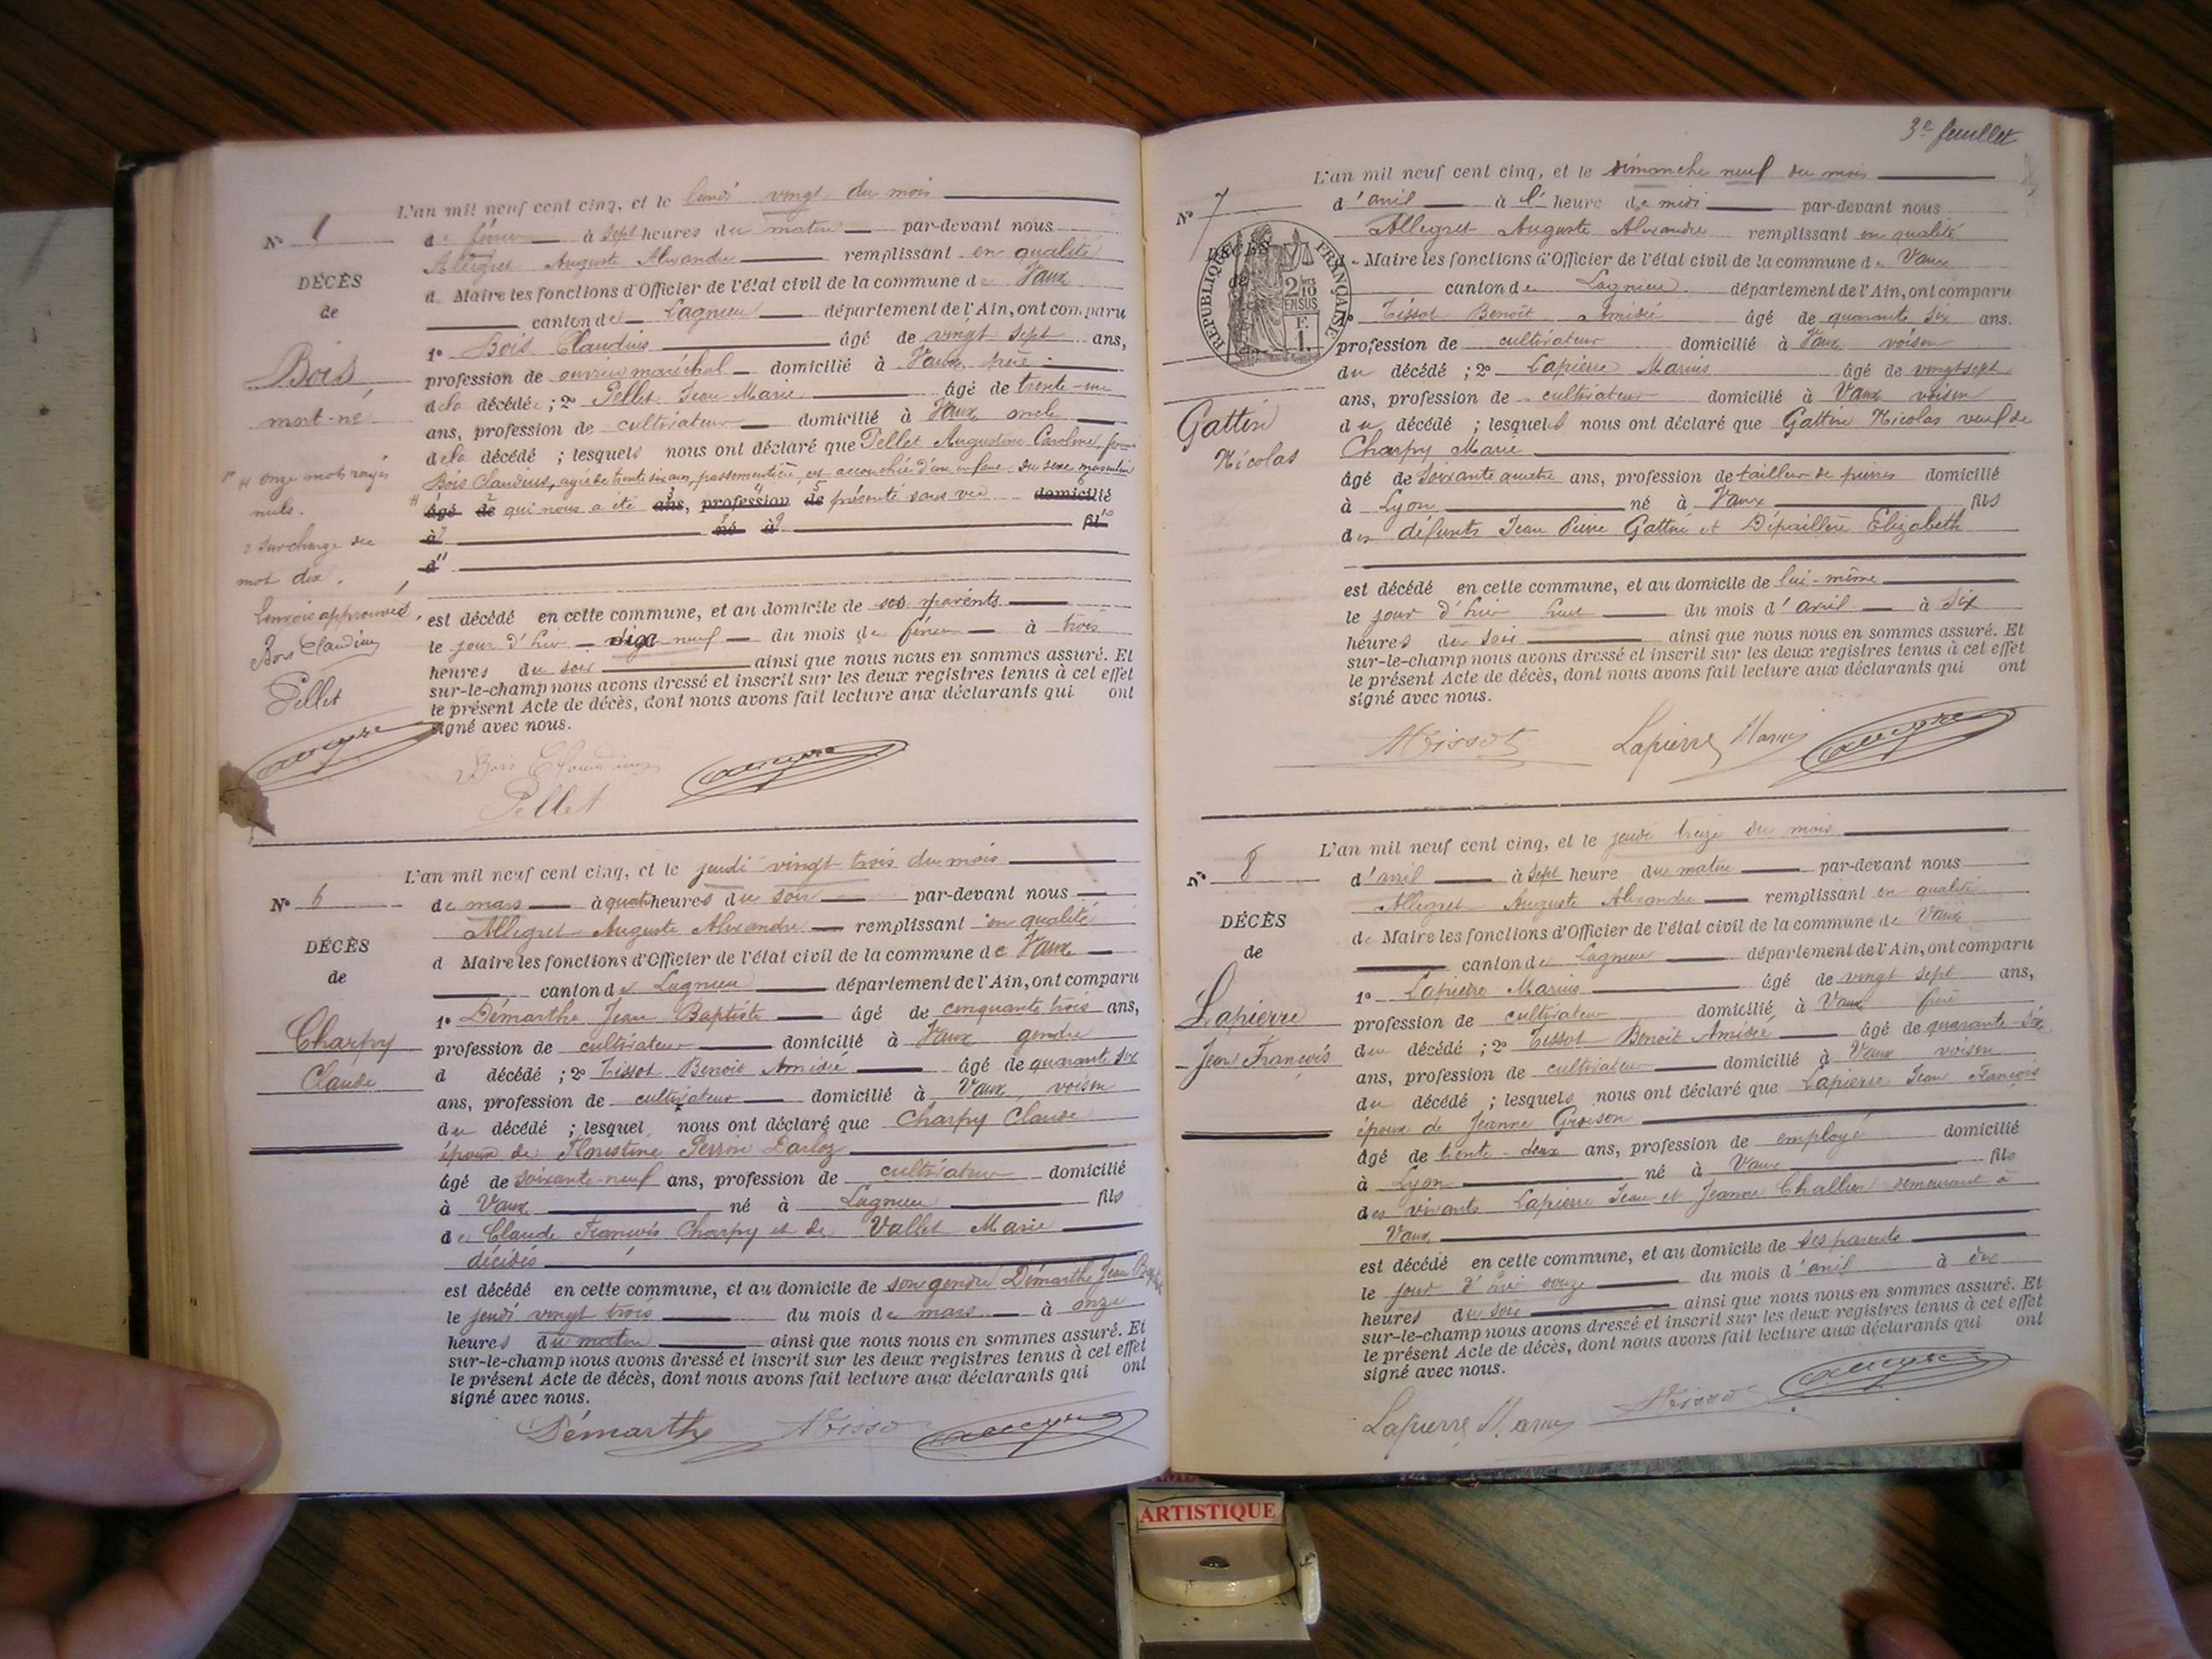 L'an mil neuf cent cinq, et le lundi vingt du mois
N°
de février à sept heures du matin par-devant nous
Allegret Auguste Alexandre remplissant en qualité
DÉCÈS
de
d Maire les fonctions d'Officier de l'état civil de la commune de Vaux
canton de Lagnieu département de l'Ain, ont comparu
1° Bois Claudius âgé de vingt sept ans,
Bois
mort-né
profession de ouvrier maréchal domicilié à Vaux père
de la décédée ; 2° Pellet Jean Marie âgé de trente-un
ans, profession de cultivateur domicilié à Vaux oncle
de la décédé ; lesquels nous ont déclaré que Pellet Augustine Caroline femme
Bois Claudius, agée de trente six ans, passementière est accouchée d'un enfant du sexe masculin
âgé de qui nous a été ans, profession de présenté sans vie domicilié
à né à fils
d
onze mots rayés
nuls.
surcharge du
mot dix.
approuvés
Bois Claudius
Pellet
est décédé en cette commune, et au domicile de ses parents
le jour d'hier dix neuf du mois de février à trois
heures du soir ainsi que nous nous en sommes assuré. Et
sur-le-champ nous avons dressé et inscrit sur les deux registres tenus à cet effet
le présent Acte de décès, dont nous avons fait lecture aux déclarants qui ont
signé avec nous.
Bois Claudius
Pellet
L'an mil neuf cent cinq, et le jeudi vingt trois du mois
N° 6
de mars à quatre heures du soir par-devant nous
Allegret Auguste Alexandre remplissant en qualité
DÉCÈS
de
d Maire les fonctions d'Officier de l'état civil de la commune de Vaux
canton de Lagnieu département de l'Ain, ont comparu
1° Démarthe Jean Baptiste âgé de cinquante trois ans,
Charpy
Claude
profession de cultivateur domicilié à Vaux gendre
d décédé ; 2° Tissot Benoit Amédée âgé de quarante six
ans, profession de cultivateur domicilié à Vaux voisin
du décédé ; lesquel nous ont déclaré que Charpy Claude
époux de Florestine Perrin Darloz
âgé de soixante-neuf ans, profession de cultivateur domicilié
à Vaux né à Lagnieu fils
de Claude François Charpy et de Vallet Marie
décédés
est décédé en cette commune, et au domicile de son gendre Démarthe Jean Baptiste
le jeudi vingt trois du mois de mars à onze
heures du matin ainsi que nous nous en sommes assuré. Et
sur-le-champ nous avons dressé et inscrit sur les deux registres tenus à cet effet
le présent Acte de décès, dont nous avons fait lecture aux déclarants qui ont
signé avec nous.
Démarthe
3e feuillet
L'an mil neuf cent cinq, et le dimanche neuf du mois
N° 7
d'avril à l' heure de midi par-devant nous
Allegret Auguste Alexandre remplissant en qualité
DÉCÈS
de
RÉPUBLIQUE FRANÇAISE
2/10 EN SUS
F. 1.
de Maire les fonctions d'Officier de l'état civil de la commune de Vaux
canton de Lagnieu département de l'Ain, ont comparu
Tissot Benoît Amédée âgé de quarante six ans.
profession de cultivateur domicilié à Vaux voisin
du décédé ; 2° Lapierre Marius âgé de vingt sept
ans, profession de cultivateur domicilié à Vaux voisin
Gattin
Nicolas
du décédé ; lesquels nous ont déclaré que Gattin Nicolas veuf de
Charpy Marie
âgé de soixante quatre ans, profession de tailleur de pierres domicilié
à Lyon né à Vaux fils
des défunts Jean Pierre Gattin et Dépaillère Elizabeth
est décédé en cette commune, et au domicile de lui-même
le jour d'hier huit du mois d'avril à six
heures du soir ainsi que nous nous en sommes assuré. Et
sur-le-champ nous avons dressé et inscrit sur les deux registres tenus à cet effet
le présent Acte de décès, dont nous avons fait lecture aux déclarants qui ont
signé avec nous.
Lapierre Marius
L'an mil neuf cent cinq, et le jeudi treize du mois
N° 8
d'avril à sept heure du matin par-devant nous
Allegret Auguste Alexandre remplissant en qualité
DÉCÈS
de
de Maire les fonctions d'Officier de l'état civil de la commune de Vaux
canton de Lagnieu département de l'Ain, ont comparu
1° Lapierre Marius âgé de vingt sept ans,
Lapierre
Jean François
profession de cultivateur domicilié à Vaux frère
du décédé ; 2° Tissot Benoit Amédée âgé de quarante-six
ans, profession de cultivateur domicilié à Vaux voisin
du décédé ; lesquels nous ont déclaré que Lapierre Jean François
époux de Jeanne
âgé de trente-deux ans, profession de employé domicilié
à Lyon né à Vaux fils
des vivants Lapierre Jean et Jeanne demeurant à
Vaux
est décédé en cette commune, et au domicile de ses parents
le jour d'hier douze du mois d'avril à dix
heures du soir ainsi que nous nous en sommes assuré. Et
sur-le-champ nous avons dressé et inscrit sur les deux registres tenus à cet effet
le présent Acte de décès, dont nous avons fait lecture aux déclarants qui ont
signé avec nous.
Lapierre Marius
ARTISTIQUE